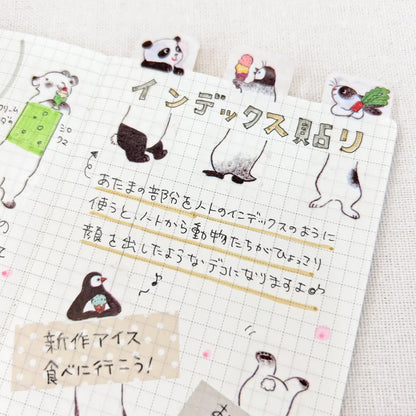 インデックス貼り
クリーム
ソーダ
シロ
クマ
あたまの部分をノートのインデックスのように
使うと、ノートから動物たちがひょっこり
顔を出したようなデコになりますよ
の
て
新作アイス
食べに行こう!